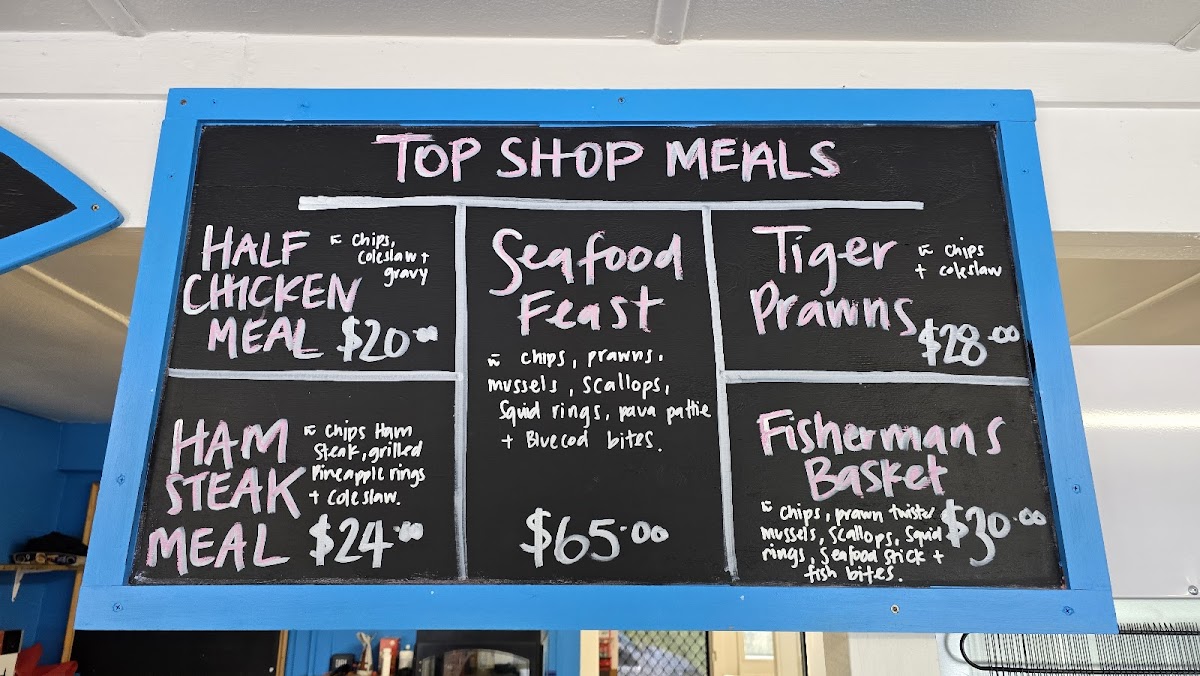 TOP SHOP MEALS
HALF
CHICKEN
MEAL $20.00
w chips,
coleslaw +
gravy
HAM
STEAK
MEAL $24.00
w chips Ham
Steak, grilled
Pineapple rings
+ coleslaw.
Seafood
Feast
w chips, prawns,
mussels, scallops,
squid rings, pava pattie
+ Bluecod bites.
$65.00
Tiger
Prawns
w chips
+ coleslaw
$28.00
Fishermans
Basket
w chips, prawn twister
mussels, scallops, squid
rings, seafood stick +
fish bites.
$30.00